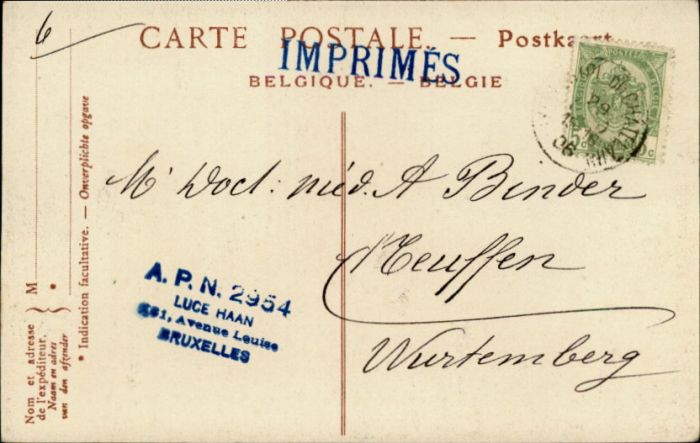 6
CARTE POSTALE. — Postkaart
IMPRIMÉS
BELGIQUE. — BELGIE
Mr Doct: méd. A Binder
Neuffen
Wurtemberg
A. P. N. 2954
LUCE HAAN
Avenue Louise
BRUXELLES
M *
Nom et adresse
de l'expéditeur.
Naam en adres
van den afzender
* Indication facultative. — Onverplichte opgave